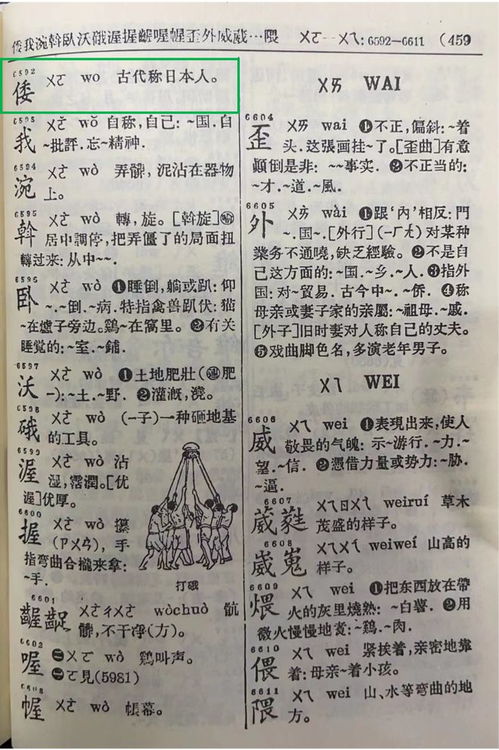 倭我涴斡臥沃硪渥握齷喔幄歪外威葳…隈 ㄨㄛ—ㄨㄟ: 6592—6611 (459
6592
倭 ㄨㄛ wo 古代称日本人。
我 ㄨㄛˇ wǒ 自称,自己: ~国.自
~批評.忘~精神.
涴 ㄨㄛˋ wò 弄髒, 泥沾在器物
上。
斡 ㄨㄛˋ wò 轉, 旋。[斡旋]
居中調停, 把弄僵了的局面扭
轉过来: 从中~~.
臥 ㄨㄛˋ wò ❶睡倒,躺或趴: 仰
~.~倒.~病. 特指禽兽趴伏: 猫
~在爐子旁边。鷄~在窩里。❷有关
睡覚的: ~室.~鋪.
6597
沃 ㄨㄛˋ wò ❶土地肥壮(肥
一): ~土.~野. ❷灌溉, 澆。
6598
硪 ㄨㄛˋ wò (一子)一种砸地基
的工具。
6599
渥 ㄨㄛˋ wò 沾
湿, 霑潤。[优
渥]优厚。
6600
握 ㄨㄛˋ wò 攥
(ㄗㄨㄢˋ), 手
指弯曲合攏来拿:
~手.
打硪
6601
齷齪 ㄨㄛˋㄔㄨㄛˋ wòchuò 骯
髒,不干净(方)。
6602
喔 ㊀ㄨㄛˋ wò 鷄叫声。
㊁ㄛ見(5981)
幄 ㄨㄛˋ wò 帳幕。
ㄨㄞ WAI
6604
歪 ㄨㄞ wai ❶不正,偏斜: ~着
头.这張画挂~了。[歪曲]有意
顚倒是非: ~~事实. ❷不正当的:
~才.~道.~風.
6605
外 ㄨㄞˋ wài ❶跟‘内’相反: 門
~.国~.[外行](一ㄏㄤˊ)对某种
業务不通曉,缺乏經驗。❷不是自
己这方面的: ~国.~乡.~人. ❸指外
国: 对~貿易. 古今中~.~侨. ❹称
母亲或妻子家的亲屬: ~祖母.~戚.
[外子]旧时妻对人称自己的丈夫。
❺戏曲脚色名,多演老年男子。
ㄨㄟ WEI
6606
威 ㄨㄟ wei ❶表現出来,使人
敬畏的气魄: 示~游行.~力.~
望.~信. ❷憑借力量或势力: ~胁.
~逼.
6607
葳蕤 ㄨㄟㄖㄨㄟˊ weiruí 草木
茂盛的样子。
6608
崴嵬 ㄨㄟㄨㄟˊ weiwei 山高的
样子。
6609
煨 ㄨㄟ wei ❶把东西放在帶
火的灰里燒熟: ~白薯. ❷用
微火慢慢地煮: ~鷄.~肉.
6610
偎 ㄨㄟ wei 紧挨着, 亲密地靠
着: 母亲~着小孩。
6611
隈 ㄨㄟ wei 山、水等弯曲的地
方。